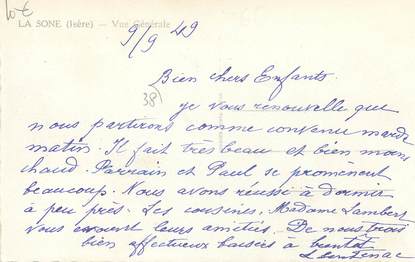 10 €
LA SONE (Isère) — Vue Générale
9/9 49
38
Bien chers Enfants.
je vous renouvelle que
nous partirons comme convenu mardi
matin. Il fait très beau et bien moins
chaud. Parrain et Paul se promènent
beaucoup. Nous avons réussi à dormir
à peu près. Les cousines, Madame Lambert
vous envoient leurs amitiés. De nous trois
bien affectueux baisers à bientôt